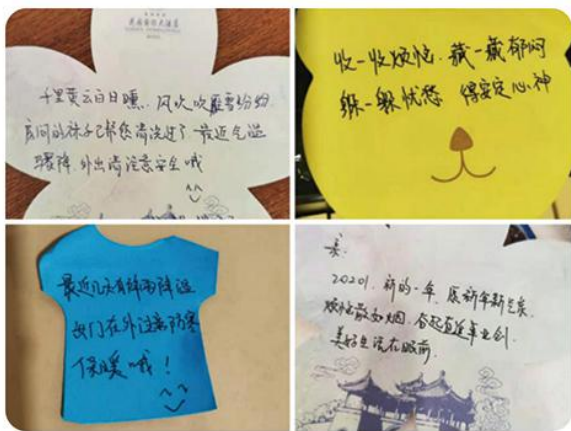 千里黄云白日曛，风吹吹雁雪纷纷
房间的袜子已帮您清洗过了，最近气温
骤降，外出请注意安全哦
收一收烦恼、藏一藏郁闷
躲一躲忧愁 得安定心神
最近几天有降雨降温
出门在外注意防寒
保暖哦！
亲：
2020年，新的一年，愿新年新气象
美好生活在眼前。